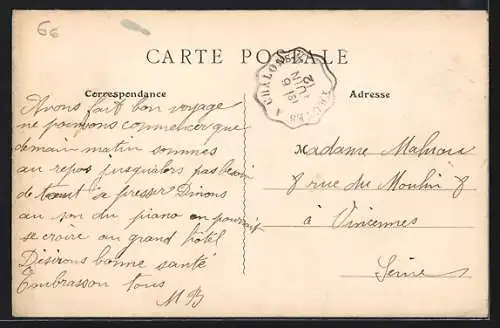 66
CARTE POSTALE
Correspondance
Avons fait bon voyage
ne pouvons commencer que
demain matin sommes
au repos jusqu'alors pas besoin
de tout s'a presser Dinons
au son du piano on pourrait
se croire au grand hôtel
Désirons bonne santé
Embrassons tous
MB
CHALONS
A
Adresse
Madame
8 rue du Moulin 8
à Vincennes
Seine